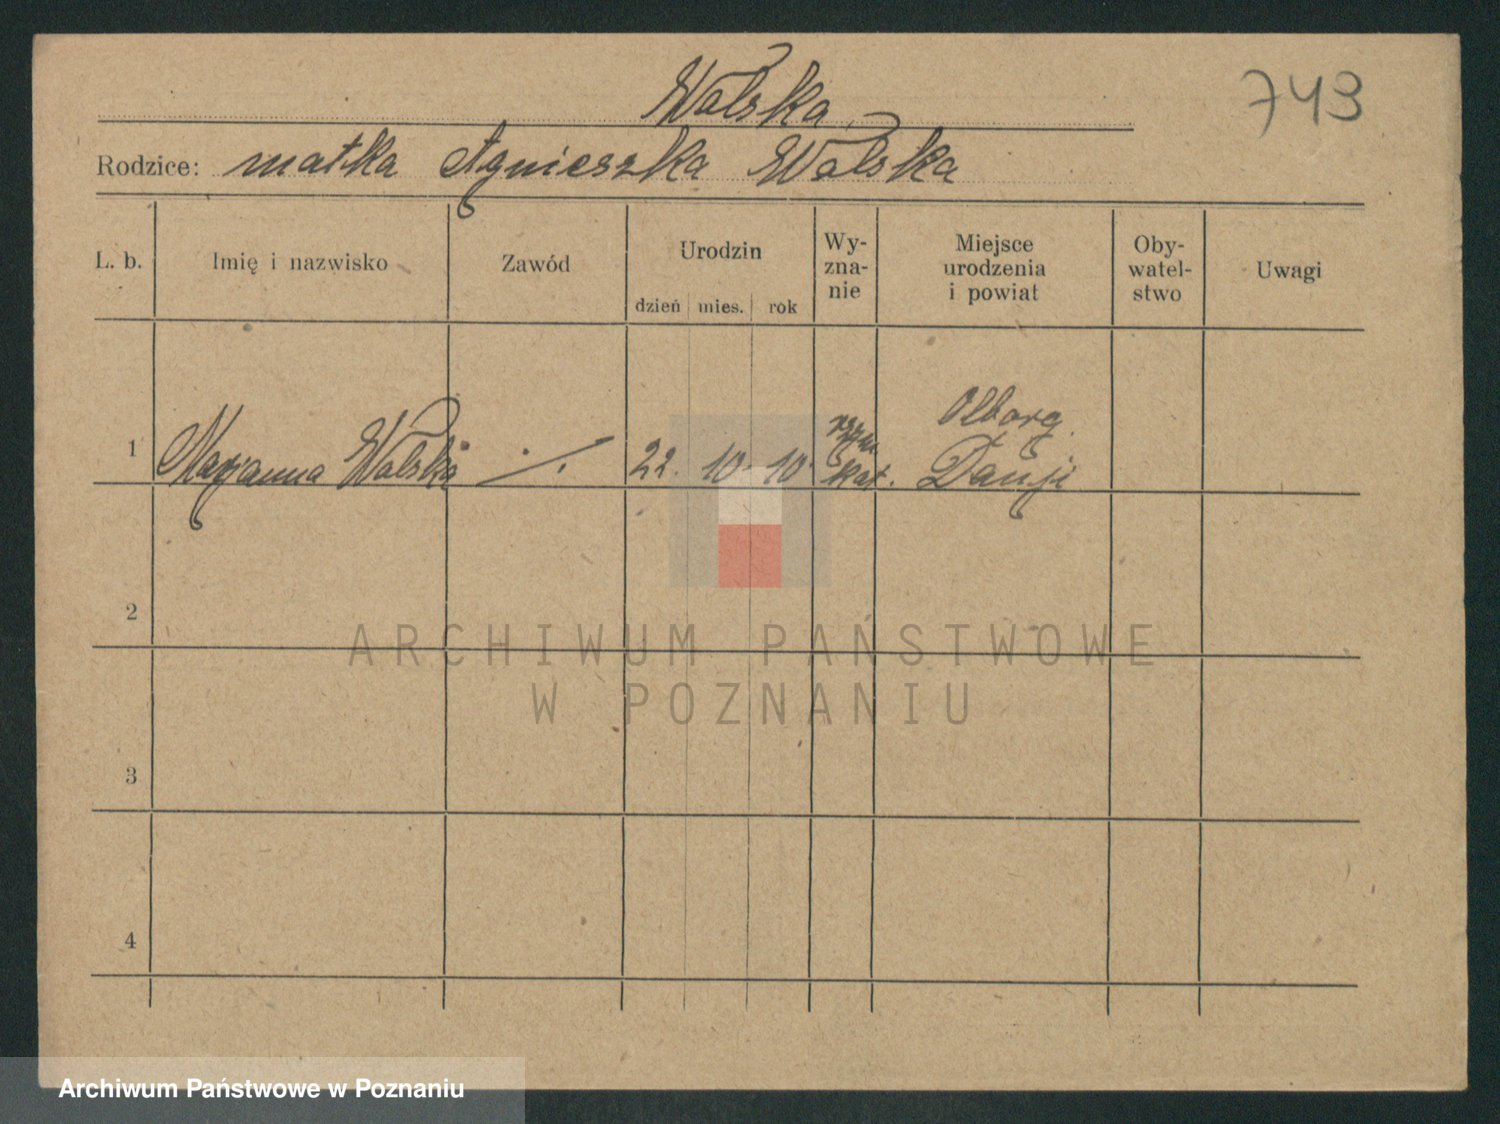 Walska
743
Rodzice: matka Agnieszka Walska
L. b. Imię i nazwisko Zawód Urodzin dzień mies. rok Wy-zna-nie Miejsce urodzenia i powiat Oby-watel-stwo Uwagi
1 Marjanna Walska ./. 22. 10 10 rzym kat. Olborg. Danji
2
3
4
ARCHIWUM PAŃSTWOWE
W POZNANIU
Archiwum Państwowe w Poznaniu